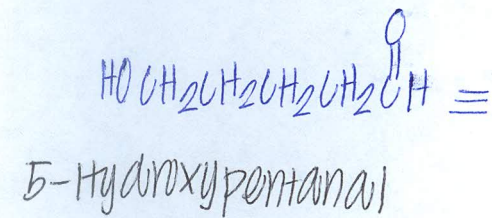 O
HOCH2CH2CH2CH2CH ≡
5-Hydroxypentanal